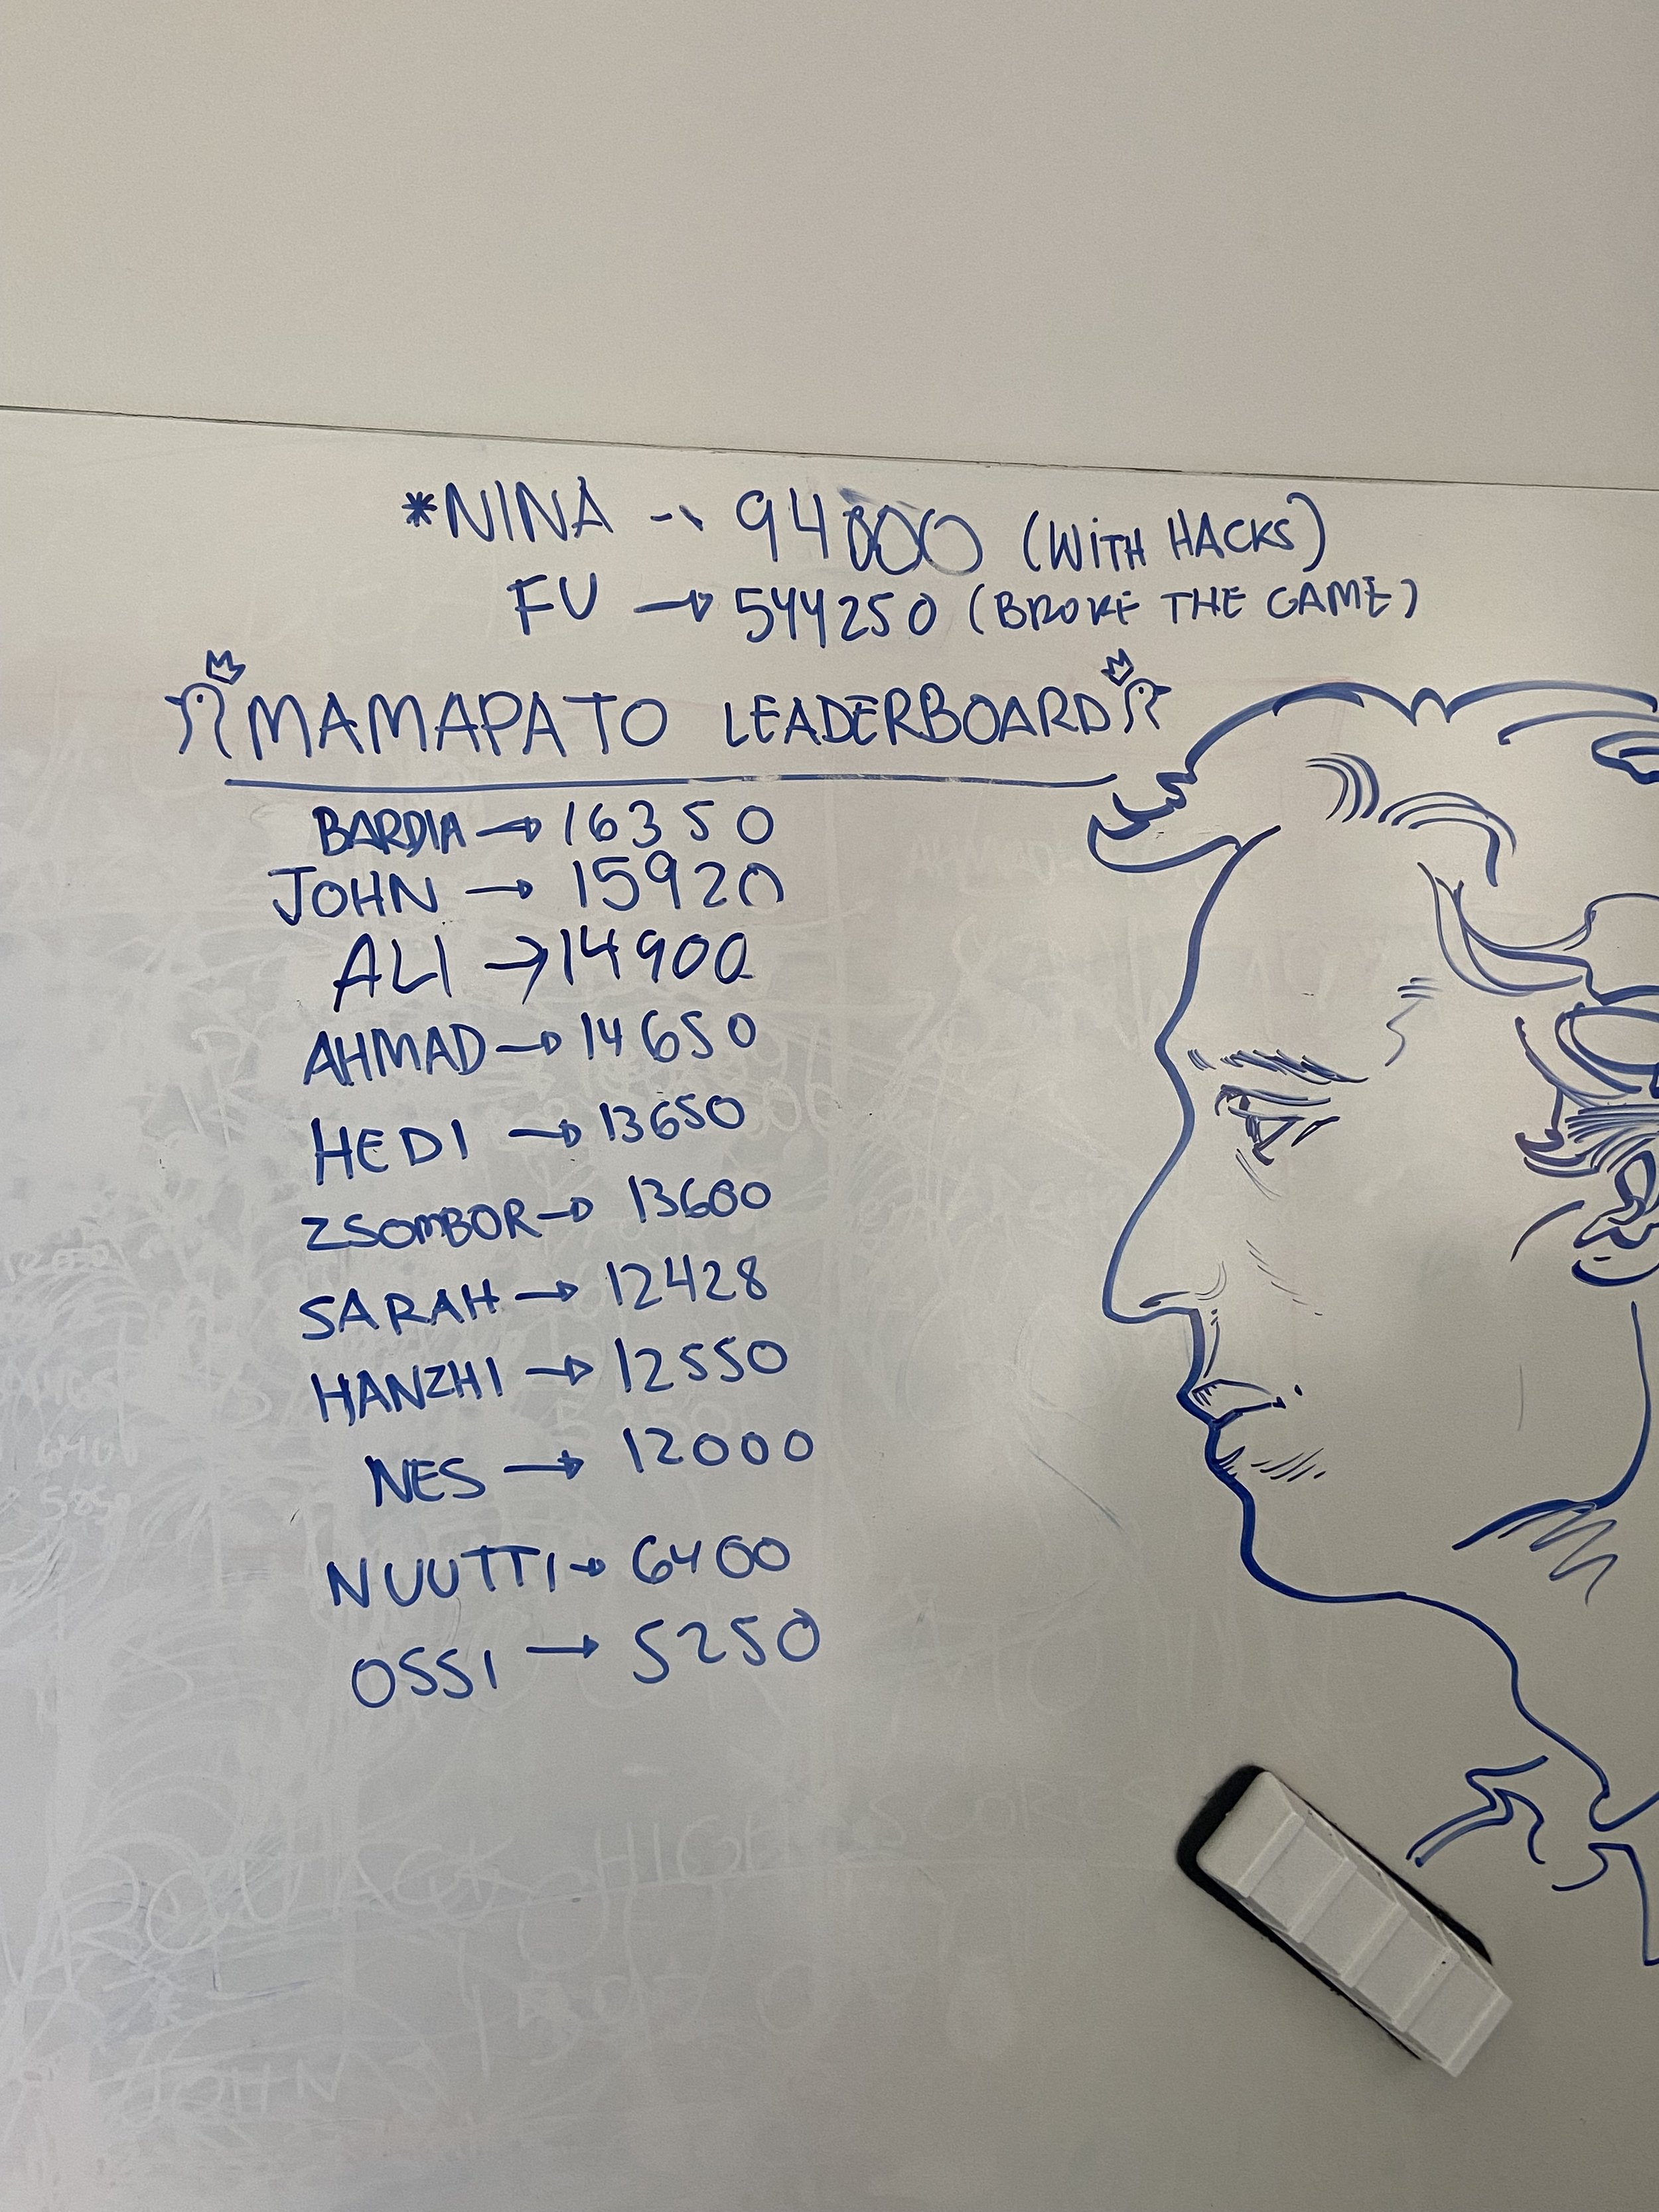 *NINA -> 94000 (WITH HACKS)
FU → 544250 (BROKE THE GAME)
MAMAPATO LEADERBOARD
BARDIA → 16350
JOHN → 15920
ALI → 14900
AHMAD → 14650
HEDI → 13650
ZSOMBOR → 13600
SARAH → 12428
HANZHI → 12550
NES → 12000
NUUTTI → 6400
OSSI → 5250